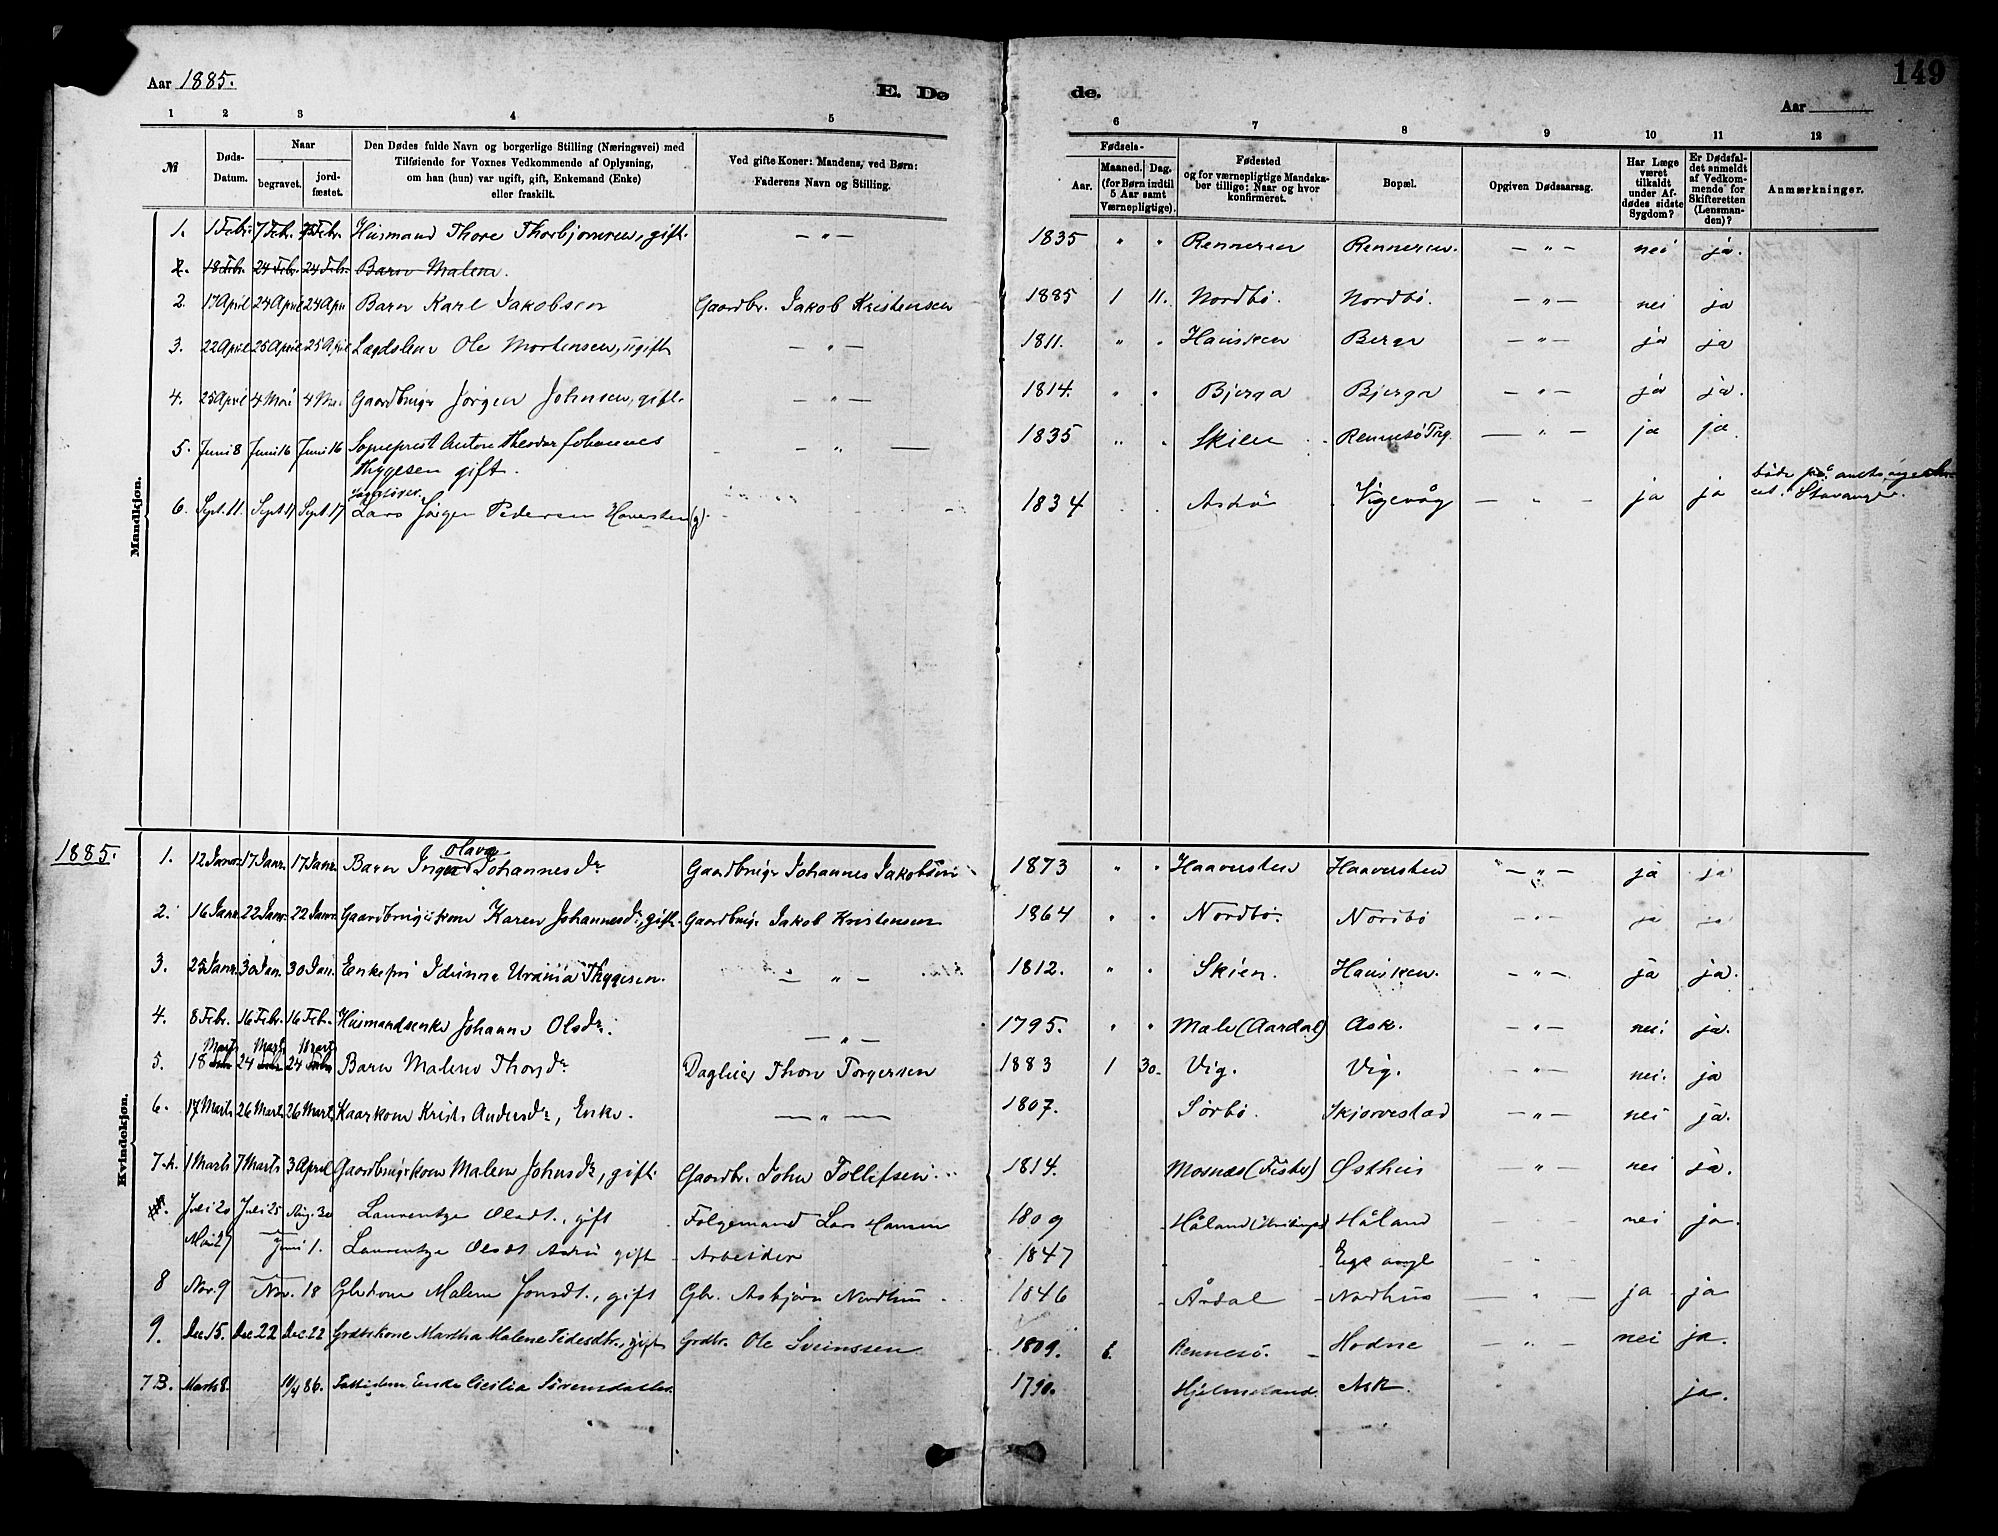 149
Aar 1885.
E. Dø
de.
Aar
1 2 3 4 5 6 7 8 9 10 11 12
№
Døds-
Datum.
Naar
begravet.
jord-
fæstet.
Den Dødes fulde Navn og borgerlige Stilling (Næringsvei) med
Tilføiende for Voxnes Vedkommende af Oplysning,
om han (hun) var ugift, gift, Enkemand (Enke)
eller fraskilt.
Ved gifte Koner: Mandens, ved Børn:
Faderens Navn og Stilling.
Fødsels-
Aar.
Maaned. Dag.
(for Børn indtil
5 Aar samt
Værnepligtige).
Fødested
og for værnepligtige Mandska-
ber tillige: Naar og hvor
konfirmeret.
Bopæl.
Opgiven Dødsaarsag.
Har Læge
været
tilkaldt
under Af-
dødes sidste
Sygdom?
Er Dødsfal-
det anmeldt
af Vedkom-
mende for
Skifteretten
(Lensman-
den)?
Anmærkninger.
Mandkjøn.
1. 1 Febr. 7 Febr. Febr. Husmand Thore Thorbjørnsen, gift. — " — 1835 " " Rennesøen Rennesøen. — " — nei ja.
2. 18 Febr. 24 Febr. 24 Febr. Barn Malene.
2. 17 April 24 April 24 Apr. Barn Karl Jakobsen Gaardbr. Jakob Kristensen 1885 1 11. Nordbö. Nordbö. — " — nei ja
3. 22 April 25 April 25 April Lægdslem Ole Mortensen, ugift — " — 1811. " " Hausken Berge — " — ja ja
4. 25 April 4 Mai 4 Mai Gaardbruger Jørgen Johnsen, gift. — " — 1814. " " Bjerga Bjerga — " — ja ja.
5. Juni 8 Juni 16 Juni 16 Sogneprest Anton Theodor Johannes — " — 1835 " " Skien Rennesö Prg. — " — ja ja.
Thygesen gift.
6. Sept. 11. Sept. 17 Sept. 17 Lars Jörgen Pedersen Haversten (g). 1834 Askö Vigevåg — " — ja ja både på
Stavanger.
1885.
Kvindekjøn.
1. 12 Janr. 17 Janr. 17 Janr. Barn Inger Olava Johannesdr. Gaardbruger Johannes Jakobsen 1873 " " Haaversten Haaversten — " — ja ja
2. 16 Janr. 22 Janr. 22 Janr. Gaardbrugerkone Karen Johannesdr., gift. Gaardbrug. Jakob Kristensen 1864 " " Nordbö. Nordbö — " — ja ja
3. 25 Janr. 30 Jan. 30 Jan. Enkefru Idunna Urania Thygesen. — " — 1812. " " Skien. Hausken. — " — ja ja.
4. 8 Febr. 16 Febr. 16 Febr. Husmandsenke Johanne Olsdr. — " — 1795. " " Male (Aardal) Ask. — " — nei ja.
Marts Marts Marts
5. 18 Febr. 24 Febr. 24 Febr. Barn Malene Thorsdr. Dagleier Thore Torgersen 1883 1 30. Vig. Vig. — " — nei. ja
6. 17 Marts 26 Marts 26 Marts Kaarkone Krist. Andersdr., Enke. — " — 1807. Sörbö. Skjørvestad — " — nei ja.
7.A. 1 Marts 7 Marts 3 April Gaardbrugerkone Malene Johnsdr., gift. Gaardbr. John Tollefsen 1814. Mosnæs (Fister) Østhus — " — nei ja.
Juli 20 Juli 25 Aug. 30 Laurentze Olsdt., gift Folgemand Lars Hansen 1809 Håland Håland — nei ja.
Mai 27 Juni 1. Laurentze Olsdt Askö gift Arbeider 1847
8 Nov. 9 Nov. 18 Gbrkone Malene Jonsdt., gift Gbr. Asbjørn Nordhus 1846 Årdal Nordhus — " — ja ja
9. Dec. 15. Dec 22 Dec. 22 Grdbrkone Martha Malene Pedersdtr., gift Grdbr. Ole Sveinssen 1809. 6. Rennesö. Hodne — " — nei ja.
7B. Marts 8. 10/4 86. Enke Cicilia Sörensdatter. 1790. Hjelmeland Ask. ja.